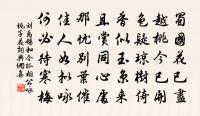 蜀國花已盡
越桃今已開
色疑瓊樹倚
香似玉京來
且賞同心處
那忧別葉催
佳人如擬咏
何必待寒梅
劉禹錫和令狐相公咏
梔子花詞典網集